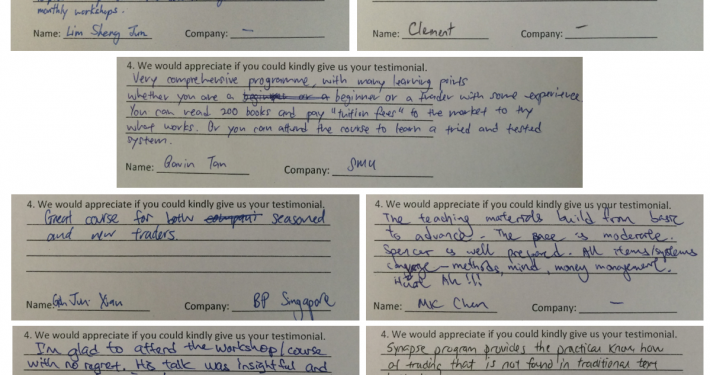 monthly workshops.
Name: Lim Sheng Jun Company: –
Name: Clement Company: –
4. We would appreciate if you could kindly give us your testimonial.
Very comprehensive programme, with many learning points
whether you are a beginner or a trader with some experience
You can read 200 books and pay "tuition fees" to the market to try
what works. Or you can attend the course to learn a tried and tested
system.
Name: Gavin Tan Company: SMU
4. We would appreciate if you could kindly give us your testimonial.
Great course for both seasoned
and new traders.
Name: Goh Jun Xian Company: BP Singapore
4. We would appreciate if you could kindly give us your testimonial.
The teaching materials build from basic
to advance. The pace is moderate.
Spencer is well prepared. All items/systems
– methods, mind, money management.
Huat Ah!!!
Name: MK Chen Company: –
4. We would appreciate if you could kindly give us your testimonial.
I'm glad to attend the workshop/course
with no regret. His talk was insightful and
4. We would appreciate if you could kindly give us your testimonial.
Synapse program provides the practical know how
of trading that is not found in traditional text